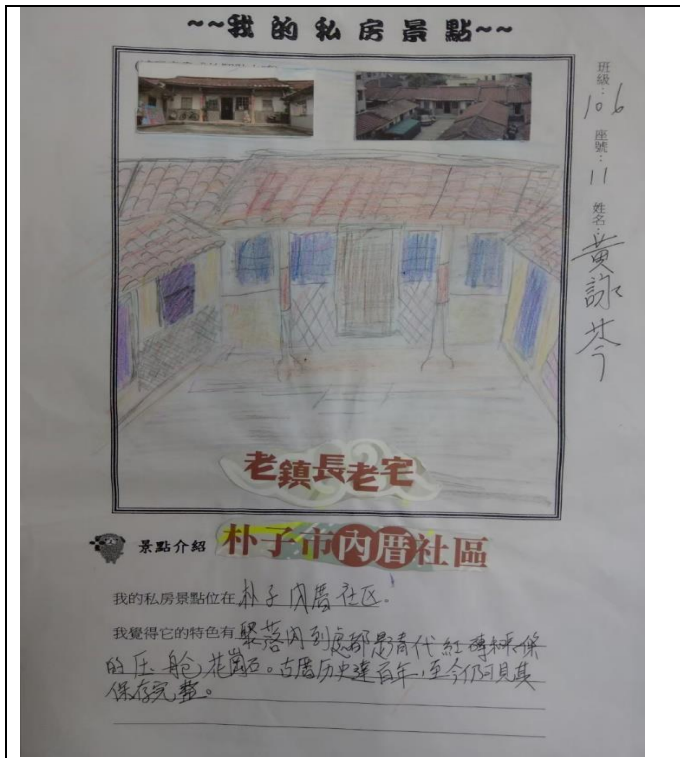 ~~我的私房景點~~
班級：106 座號：11 姓名：黃詠芩
老鎮長老宅
景點介紹 朴子市內厝社區
我的私房景點位在 朴子內厝社区.
我覺得它的特色有 聚落內到處都是清代紅磚
的压舱花崗石。古厝历史達百年，至今仍可見其
保存完整。